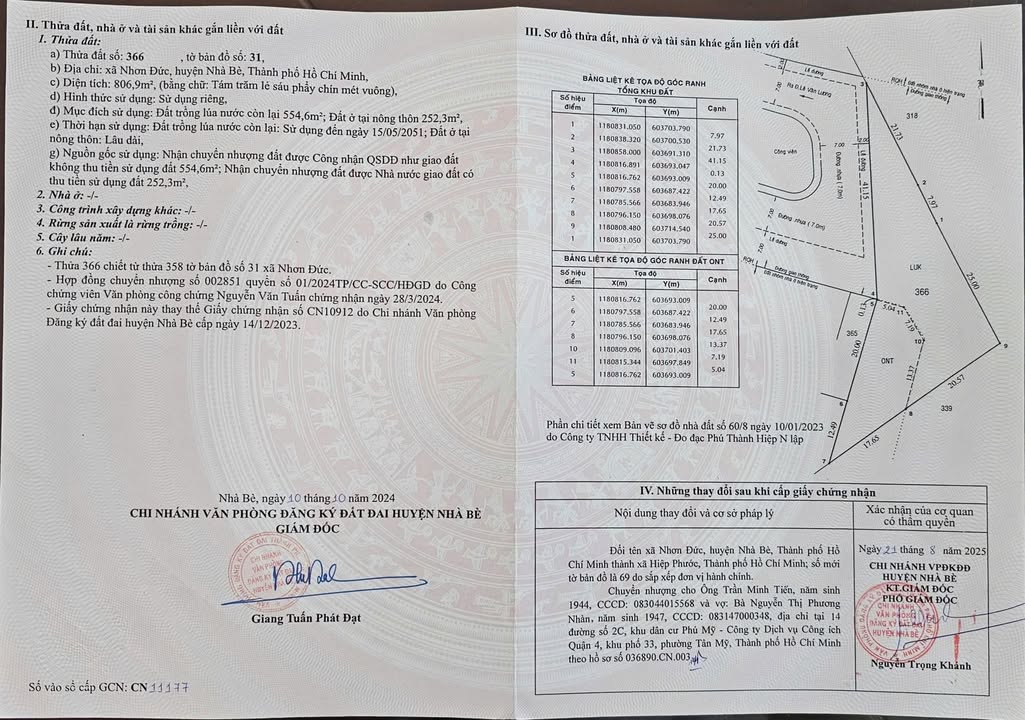 II. Thửa đất, nhà ở và tài sản khác gắn liền với đất
1. Thửa đất:
a) Thửa đất số: 366 , tờ bản đồ số: 31,
b) Địa chỉ: xã Nhơn Đức, huyện Nhà Bè, Thành phố Hồ Chí Minh,
c) Diện tích: 806,9m², (bằng chữ: Tám trăm lẻ sáu phẩy chín mét vuông),
d) Hình thức sử dụng: Sử dụng riêng,
đ) Mục đích sử dụng: Đất trồng lúa nước còn lại 554,6m²; Đất ở tại nông thôn 252,3m²,
e) Thời hạn sử dụng: Đất trồng lúa nước còn lại: Sử dụng đến ngày 15/05/2051; Đất ở tại
nông thôn: Lâu dài,
g) Nguồn gốc sử dụng: Nhận chuyển nhượng đất được Công nhận QSDĐ như giao đất
không thu tiền sử dụng đất 554,6m²; Nhận chuyển nhượng đất được Nhà nước giao đất có
thu tiền sử dụng đất 252,3m²,
2. Nhà ở: -/-
3. Công trình xây dựng khác: -/-
4. Rừng sản xuất là rừng trồng: -/-
5. Cây lâu năm: -/-
6. Ghi chú:
- Thửa 366 chiết từ thửa 358 tờ bản đồ số 31 xã Nhơn Đức.
- Hợp đồng chuyển nhượng số 002851 quyển số 01/2024TP/CC-SCC/HĐGD do Công
chứng viên Văn phòng công chứng Nguyễn Văn Tuấn chứng nhận ngày 28/3/2024.
- Giấy chứng nhận này thay thế Giấy chứng nhận số CN10912 do Chi nhánh Văn phòng
Đăng ký đất đai huyện Nhà Bè cấp ngày 14/12/2023.
Nhà Bè, ngày 10 tháng 10 năm 2024
CHI NHÁNH VĂN PHÒNG ĐĂNG KÝ ĐẤT ĐAI HUYỆN NHÀ BÈ
GIÁM ĐỐC
CHI NHÁNH
VĂN PHÒNG
ĐĂNG KÝ ĐẤT ĐAI
Giang Tuấn Phát Đạt
Số vào sổ cấp GCN: CN 11177
III. Sơ đồ thửa đất, nhà ở và tài sản khác gắn liền với đất
BẢNG LIỆT KÊ TỌA ĐỘ GÓC RANH
TỔNG KHU ĐẤT
Số hiệu điểm Tọa độ Cạnh
X(m) Y(m)
1 1180831.050 603703.790
7.97
2 1180838.320 603700.530
21.73
3 1180858.000 603691.310
41.15
4 1180816.891 603693.047
0.13
5 1180816.762 603693.009
20.00
6 1180797.558 603687.422
12.49
7 1180785.566 603683.946
17.65
8 1180796.150 603698.076
20.57
9 1180808.480 603714.540
25.00
1 1180831.050 603703.790
BẢNG LIỆT KÊ TỌA ĐỘ GÓC RANH ĐẤT ONT
Số hiệu điểm Tọa độ Cạnh
X(m) Y(m)
5 1180816.762 603693.009
20.00
6 1180797.558 603687.422
12.49
7 1180785.566 603683.946
17.65
8 1180796.150 603698.076
13.37
10 1180809.096 603701.403
7.19
11 1180815.344 603697.849
5.04
5 1180816.762 603693.009
Lề đường
Ra Đ.Lê Văn Lương
Công viên
7.00
Đường nhựa (7.0m)
Lề đường
41.15
3
318
21.73
2
7.97
1
25.00
7.00
Đường nhựa (7.0m)
Lề đường
LUK
366
4
5
0.13
5.04
11
7.19
10
365
20.00
ONT
13.37
9
20.57
339
6
8
12.49
17.65
7
Phần chi tiết xem Bản vẽ sơ đồ nhà đất số 60/8 ngày 10/01/2023
do Công ty TNHH Thiết kế - Đo đạc Phú Thành Hiệp N lập
IV. Những thay đổi sau khi cấp giấy chứng nhận
Nội dung thay đổi và cơ sở pháp lý
Xác nhận của cơ quan
có thẩm quyền
Đổi tên xã Nhơn Đức, huyện Nhà Bè, Thành phố Hồ
Chí Minh thành xã Hiệp Phước, Thành phố Hồ Chí Minh; số mới
tờ bản đồ là 69 do sắp xếp đơn vị hành chính.
Chuyển nhượng cho Ông Trần Minh Tiến, năm sinh
1944, CCCD: 083044015568 và vợ: Bà Nguyễn Thị Phương
Nhàn, năm sinh 1947, CCCD: 083147000348, địa chỉ tại 14
đường số 2C, khu dân cư Phú Mỹ - Công ty Dịch vụ Công ích
Quận 4, khu phố 33, phường Tân Mỹ, Thành phố Hồ Chí Minh
theo hồ sơ số 036890.CN.003
Ngày 21 tháng 8 năm 2025
CHI NHÁNH VPĐKĐĐ
HUYỆN NHÀ BÈ
KT.GIÁM ĐỐC
PHÓ GIÁM ĐỐC
CHI NHÁNH
VĂN PHÒNG
ĐĂNG KÝ ĐẤT ĐAI
HUYỆN NHÀ BÈ
Nguyễn Trọng Khánh